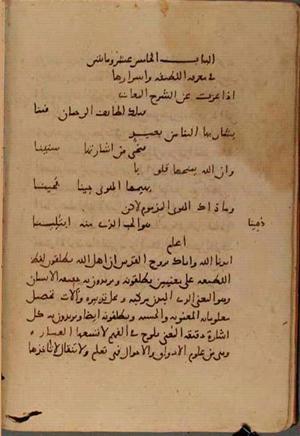 الباب الخامس عشر ومائتين
في معرفة اللطيفة واسرارها
اذا عزت عن الشرح المعاني
فتلك لطايف الرحمان فينا
يشار بها الينا من بعيد
فنحيى من اشارتها سنينا
وان الله يمنحها قلوبا
يميتها الهوى حينا فحينا
وما ذاك الهوى المذموم لاكن
هو الحب الذي منه ابتلينا
اعلم
ايدنا الله واياك بروح القدس ان اهل الله يطلقون لفظ
اللطيفة على معنيين يطلقونه ويريدون به حقيقة الانسان
وهو المعنى الذي البدن مركبه ومحل تدبيره وآلات تحصيل
معلوماته المعنوية والحسية ويطلقونه ايضا ويريدون به كل
اشارة دقيقة المعنى تلوح في الفهم لا تسعها العبارة
وهي من علوم الاذواق والاحوال فهي تعلم ولا تنقال لا تاخذها